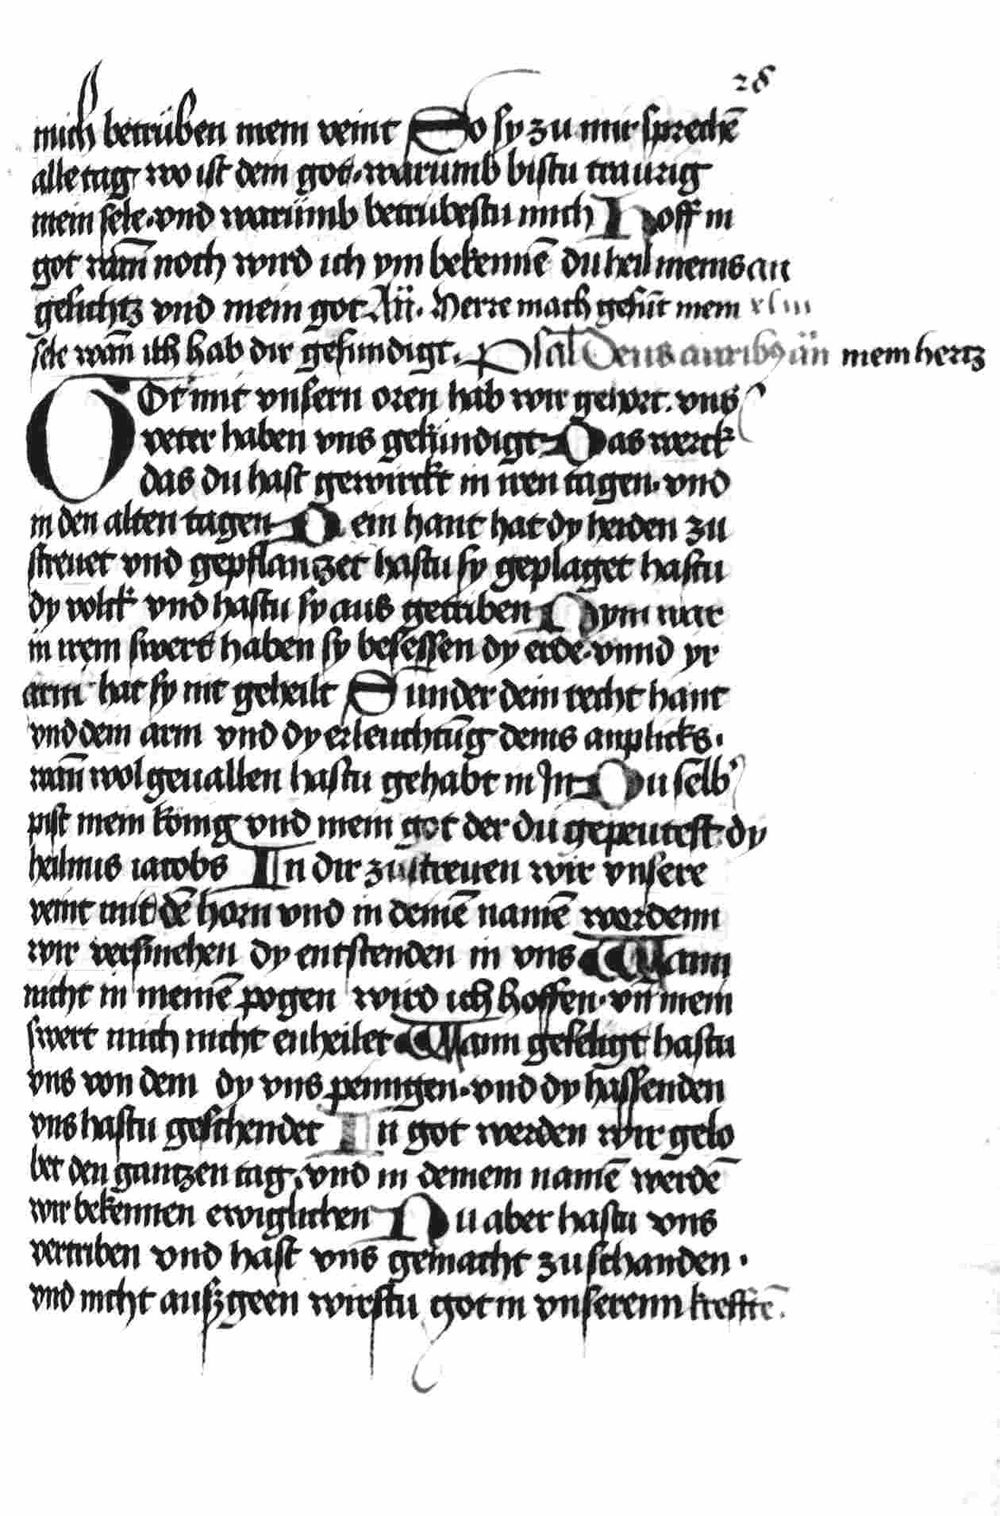 28
mich betrüben mein veint So sy zu mir sprechē
alle tag wo ist dein got. warumb bistu traurig
mein sele. vnd warümb betrubestu mich Hoff in
got wañ noch wird ich ym bekennē du heil meins an
gesichtz vnd mein got Añ. Herre mach gesūt mein xliii
sele wañ ich hab dir gesundigt. Psal Deus auribꝰ añ mein hertz
GOt mit vnsern oren hab wir gehort. vns
veter haben vns gekündigt Das werck
das du hast gewirckt in iren tagen. vnd
in den alten tagen Dein hant hat dy heiden zu
streuet vnd gepflanzet hastu sy geplaget hastu
dy volck vnd hastu sy aus getriben Nym war
in irem swert haben sy besessen dy erde. vnnd yr
arm hat sy nit geheilt Sunder dein recht hant
vnd dein arm vnd dy erleuchtūg deins anplicks.
wañ wol geuallen hastu gehabt in In Du selb
pist mein konig vnd mein got der du gepeutest dy
heilmis iacobs In dir zustreuen wir vnsere
veint mit dē horn vnd in deinē namē werdenn
wir versmehen dy entstenden in vns Wann
nicht in meinē pogen wird ich hoffen. vñ mein
swert mich nicht enheilet Wann geseligt hastu
vns von dem dy vns peinigen. vnd dy hassenden
vns hastu geschendet In got werden wir gelo
bet den gantzen tag. vnd in deinem namē werdē
wir bekennen ewiglichen Nu aber hastu vns
vertriben vnd hast vns gemacht zu schanden.
vnd nicht außgeen wirstu got in vnserenn krefftē.